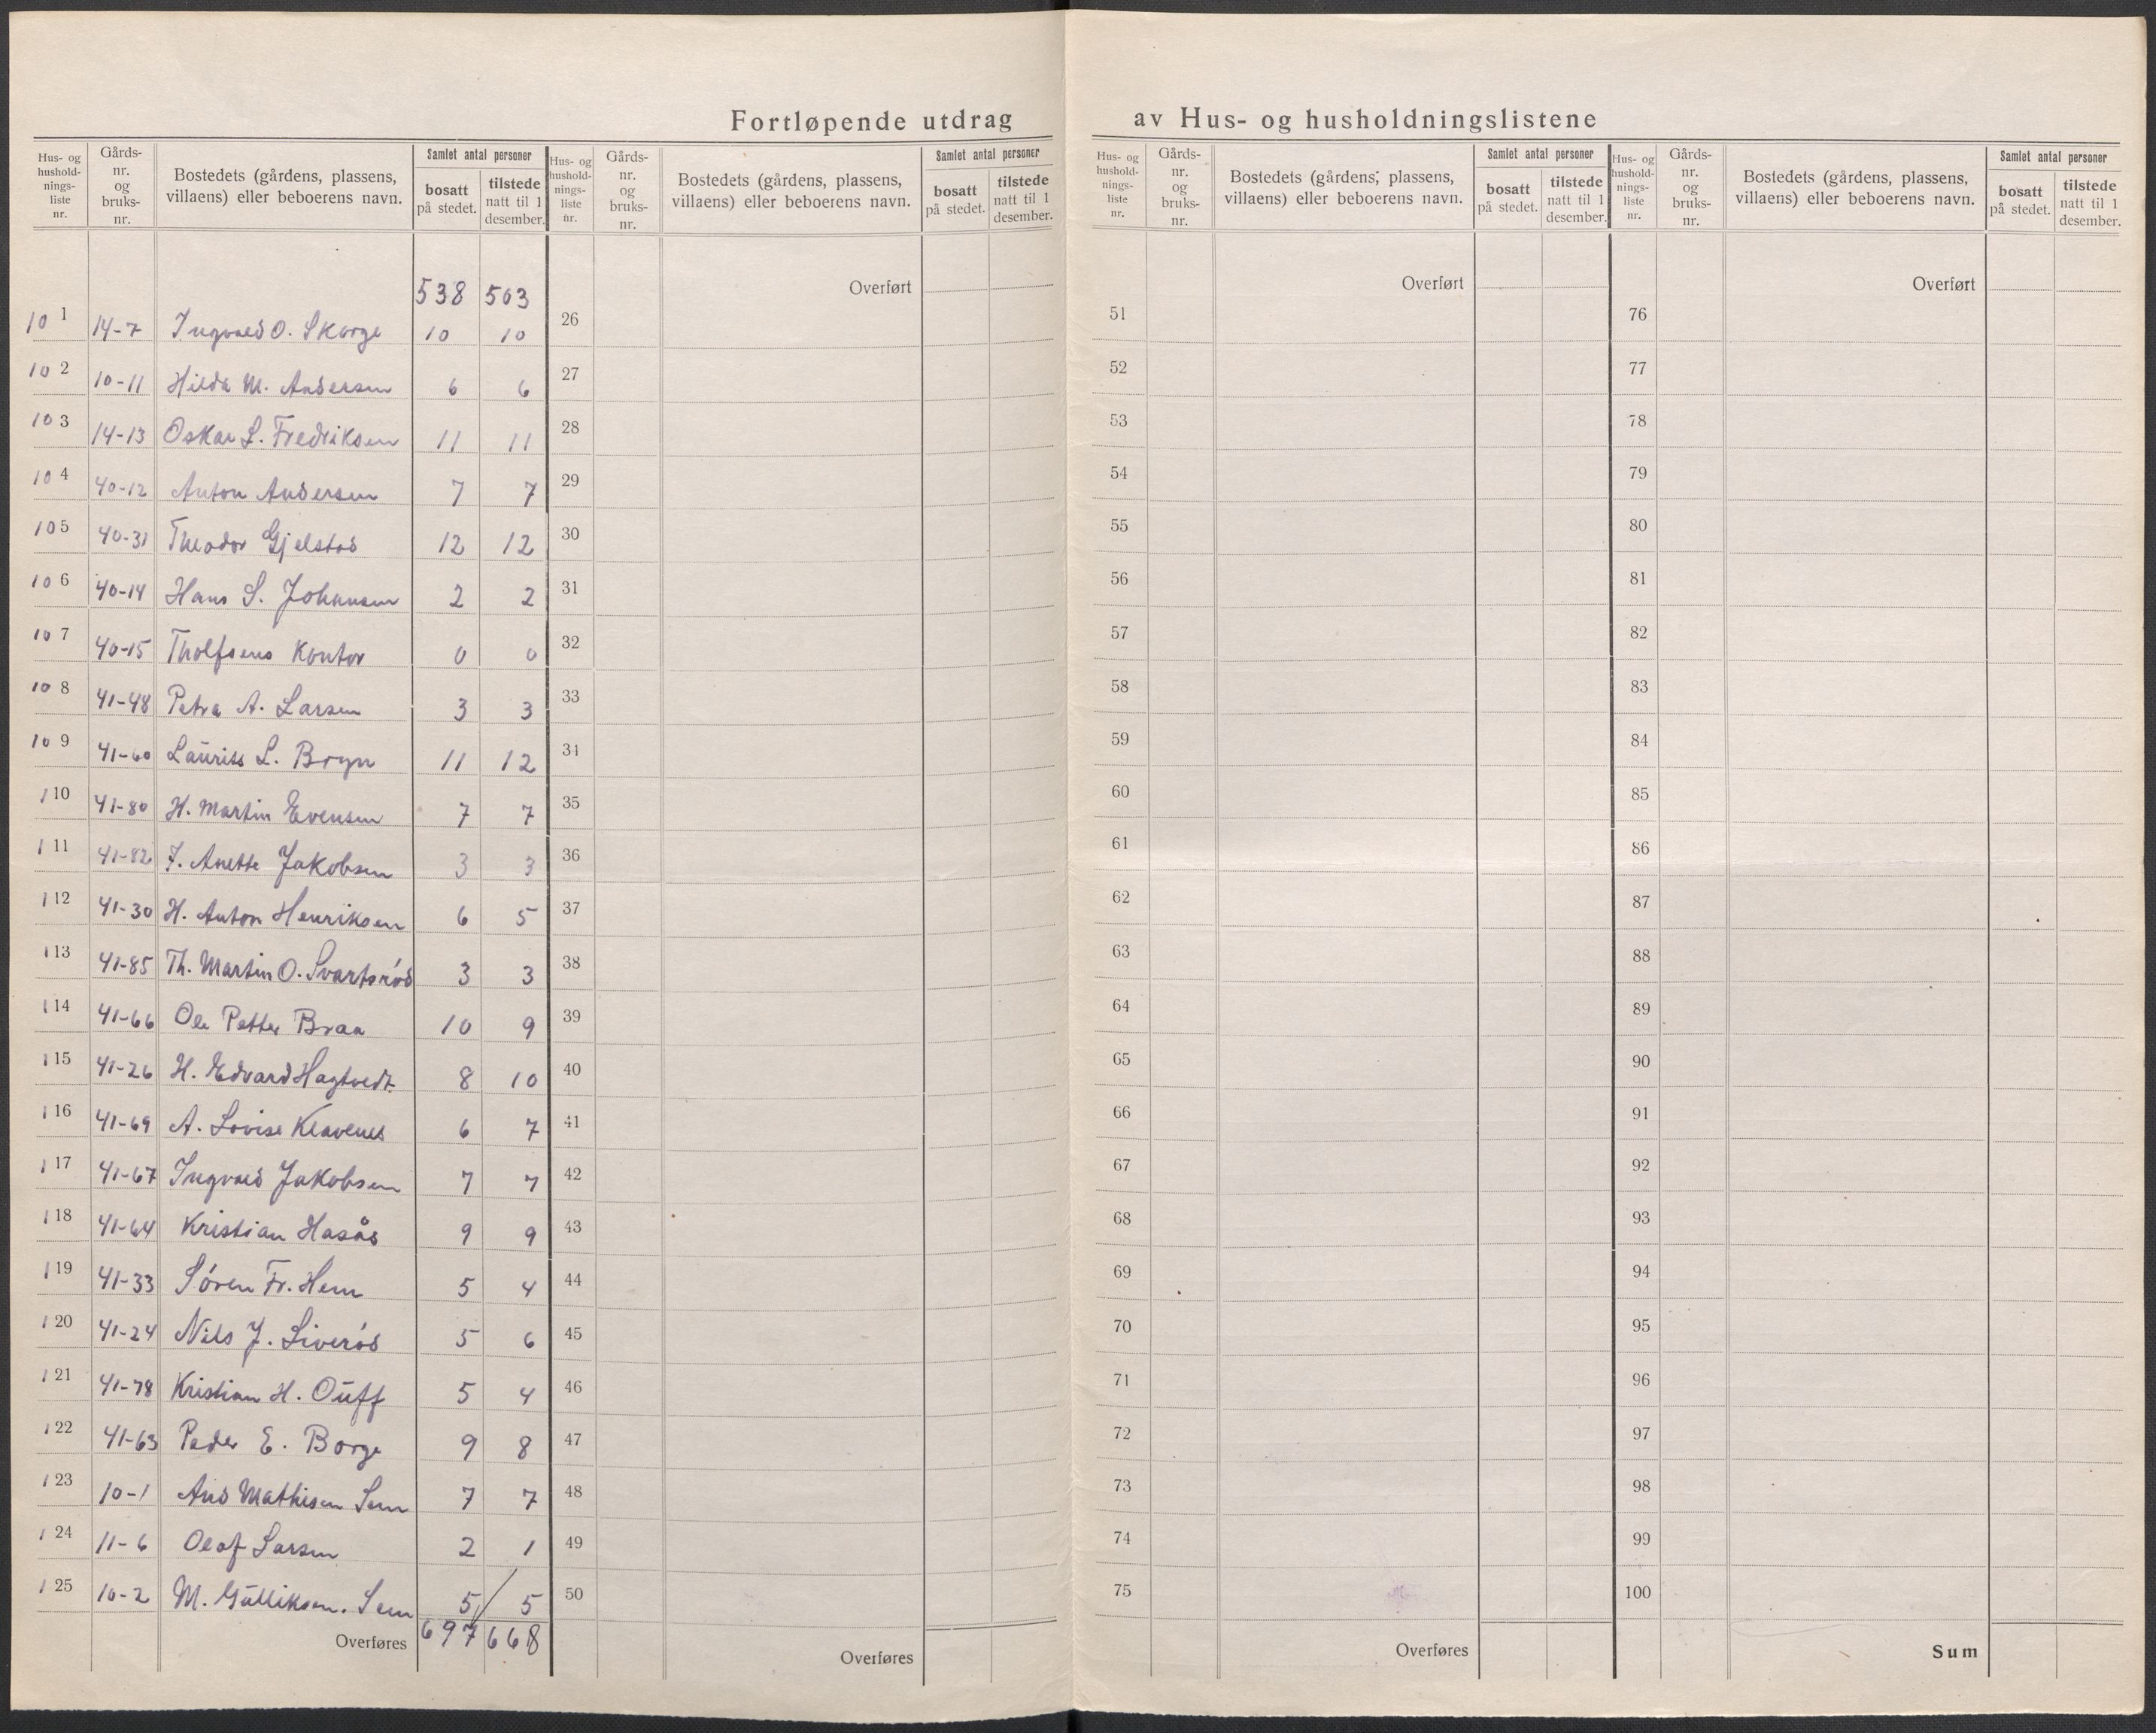 Fortløpende utdrag av Hus- og husholdningslistene
Hus- og hushold-nings-liste nr. Gårds-nr. og bruks-nr. Bostedets (gårdens, plassens, villaens) eller beboerens navn. Samlet antal personer bosatt på stedet. tilstede natt til 1 desember.
Hus- og hushold-nings-liste nr. Gårds-nr. og bruks-nr. Bostedets (gårdens, plassens, villaens) eller beboerens navn. Samlet antal personer bosatt på stedet. tilstede natt til 1 desember.
Hus- og hushold-nings-liste nr. Gårds-nr. og bruks-nr. Bostedets (gårdens, plassens, villaens) eller beboerens navn. Samlet antal personer bosatt på stedet. tilstede natt til 1 desember.
Hus- og hushold-nings-liste nr. Gårds-nr. og bruks-nr. Bostedets (gårdens, plassens, villaens) eller beboerens navn. Samlet antal personer bosatt på stedet. tilstede natt til 1 desember.
538 503 Overført Overført Overført
101 14-7 Ingvald O. Skorge 10 10 26 51 76
102 10-11 Hilda M. Andersen 6 6 27 52 77
103 14-13 Oskar L. Fredriksen 11 11 28 53 78
104 40-12 Anton Andersen 7 7 29 54 79
105 40-31 Theodor Gjelstad 12 12 30 55 80
106 40-14 Hans S. Johansen 2 2 31 56 81
107 40-15 Tholfsens Kontor 0 0 32 57 82
108 41-48 Petra A. Larsen 3 3 33 58 83
109 41-60 Laurits L. Bryn 11 12 34 59 84
110 41-80 H. Martin Evensen 7 7 35 60 85
111 41-82 J. Anette Jakobsen 3 3 36 61 86
112 41-30 H. Anton Henriksen 6 5 37 62 87
113 41-85 Th. Martin O. Svartsrød 3 3 38 63 88
114 41-66 Ole Petter Braa 10 9 39 64 89
115 41-26 H. Edvard Hagtvedt 8 10 40 65 90
116 41-69 A. Lovise Klavenes 6 7 41 66 91
117 41-67 Ingvald Jakobsen 7 7 42 67 92
118 41-64 Kristian Hasås 9 9 43 68 93
119 41-33 Søren Fr. Hem 5 4 44 69 94
120 41-24 Nils J. Liverød 5 6 45 70 95
121 41-78 Kristian H. Ouff 5 4 46 71 96
122 41-63 Peder E. Borge 9 8 47 72 97
123 10-1 And Mathisen Sem 7 7 48 73 98
124 11-6 Olaf Larsen 2 1 49 74 99
125 10-2 M. Gulliksen. Sem 5 5 50 75 100
Overføres 697 668 Overføres Overføres Sum